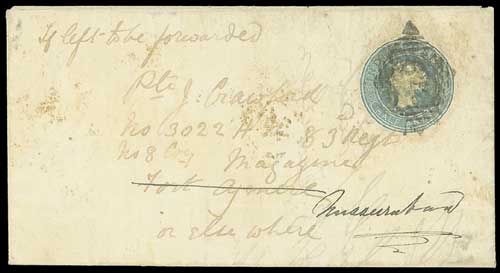 If left to be forwarded
Pte J. Crawford
No 3022 H M 83 Regt
No 8 Coy Magazine
Fort Ajmere
Nusseerabad
or else where